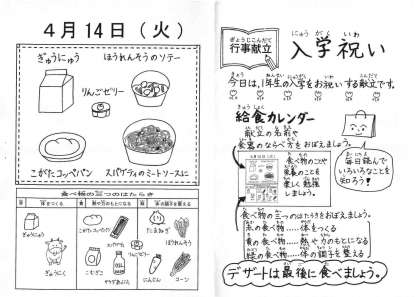 4月14日（火）
ぎゅうにゅう
ほうれんそうのソテー
りんごゼリー
こがたコッペパン
スパゲティのミートソースに
食べ物の三つのはたらき
ぎゅうにゅう
ぎゅうにく
こがたコッペパン
スパゲティ
りんごゼリー
こむぎこ
たまねぎ
ほうれんそう
にんじん
コーン
行事献立
ぎょうじこんだて
入学祝い
にゅうがくいわ
今日は、1年生の入学をお祝いする献立です。
給食カレンダー
献立の名前や
食器のならべ方をおぼえましょう。
食べ物のことや
栄養のことを
楽しく勉強
しましょう。
毎日読んで
いろいろなことを
知ろう！
食べ物の三つのはたらきをおぼえましょう。
赤の食べ物……体をつくる
黄の食べ物……熱や力のもとになる
緑の食べ物……体の調子を整える
デザートは最後に食べましょう。